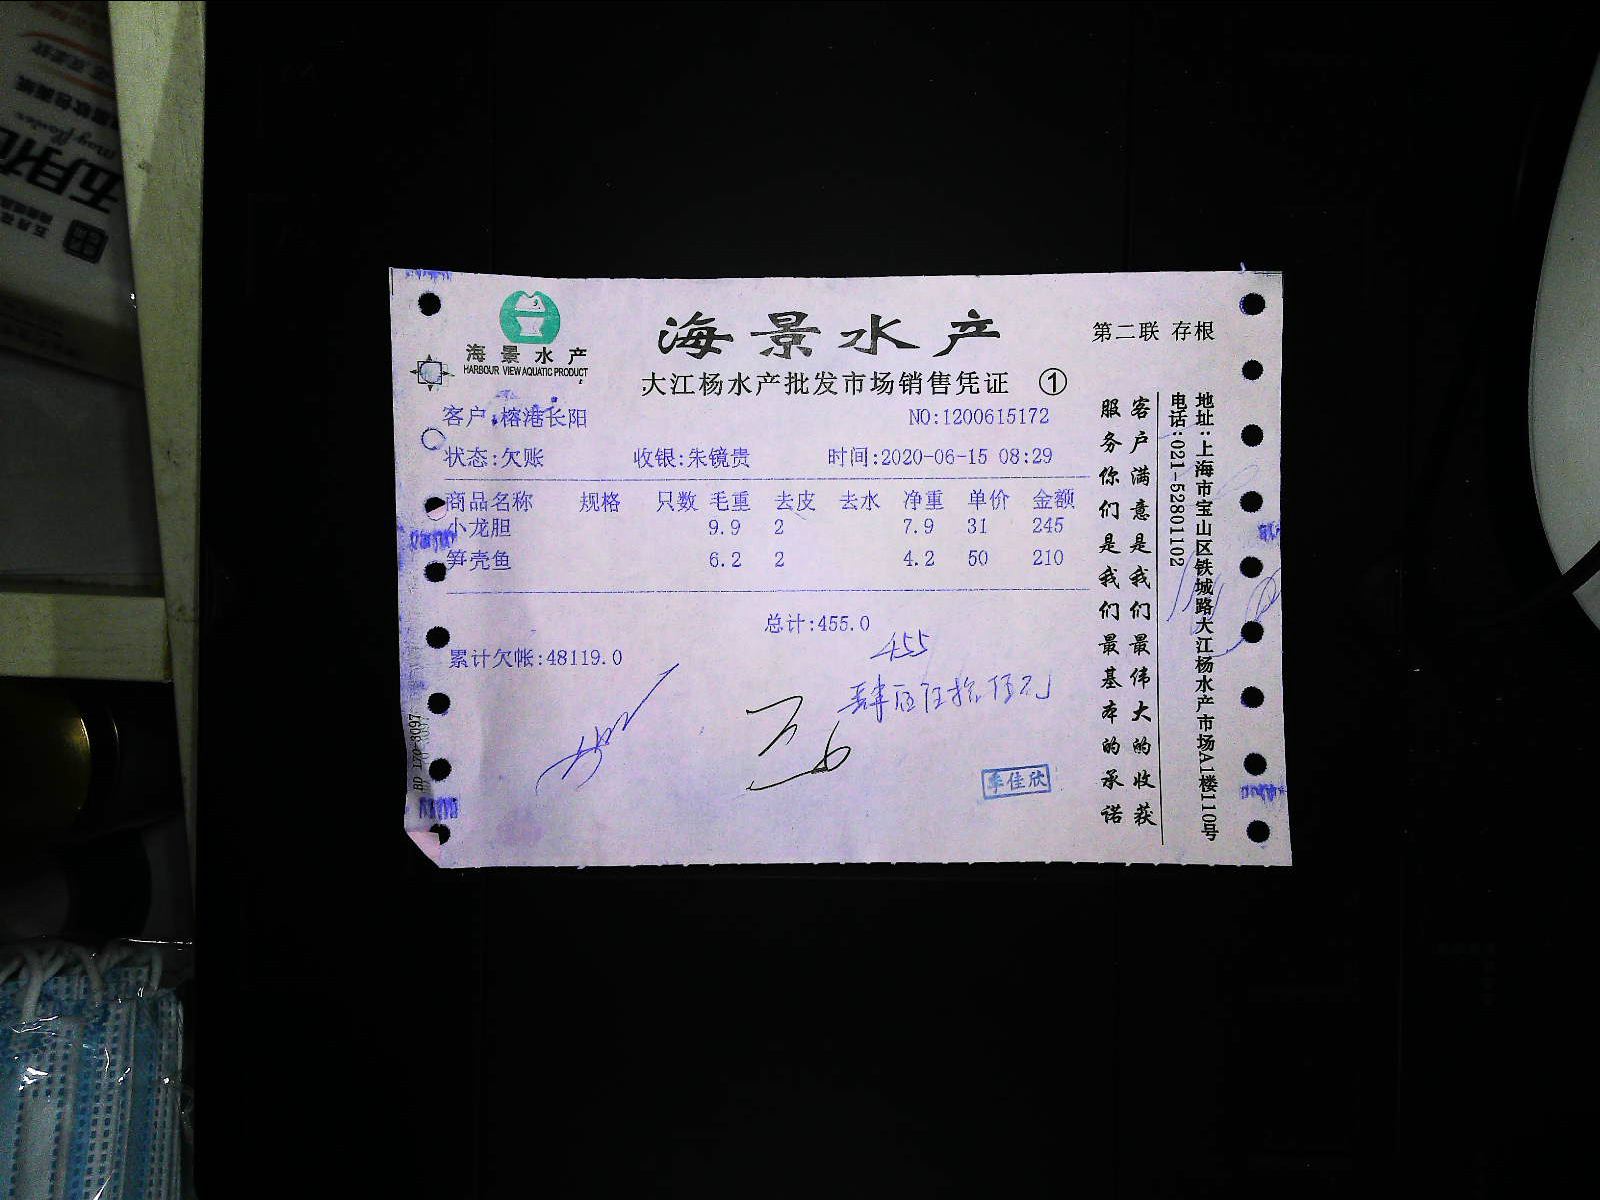 五月花
May flower
海景水产
HARBOUR VIEW AQUATIC PRODUCT
海景水产
第二联 存根
大江杨水产批发市场销售凭证 ①
客户:榕港长阳 NO:1200615172
状态:欠账 收银:朱镜贵 时间:2020-06-15 08:29
商品名称 规格 只数 毛重 去皮 去水 净重 单价 金额
小龙胆 9.9 2 7.9 31 245
笋壳鱼 6.2 2 4.2 50 210
总计:455.0
累计欠帐:48119.0
455
肆佰伍拾伍元
季佳欣
客户满意是我们最伟大的收获
服务你们是我们最基本的承诺
地址:上海市宝山区铁城路大江杨水产市场A1楼110号
电话:021-52801102
BD 170-8097